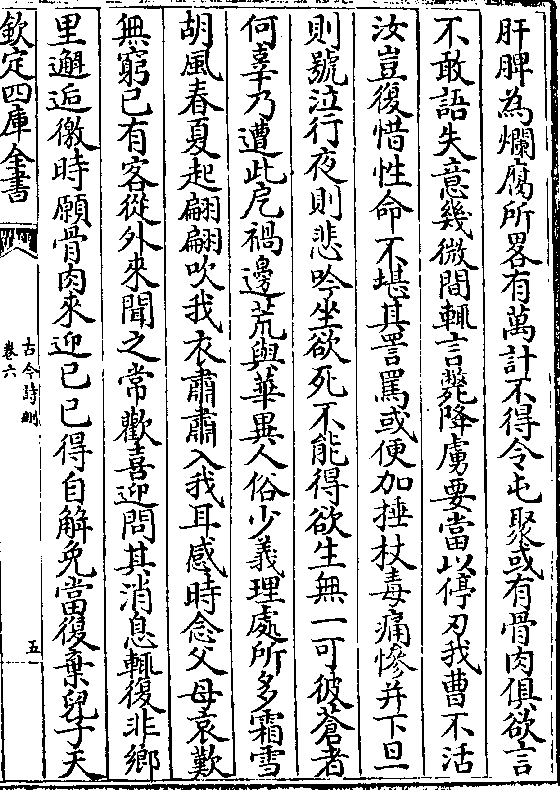 肝脾為爛腐所畧有萬計不得令屯聚或有骨肉俱欲言
不敢語失意幾微間輒言斃降虜要當以停刃我曹不活
汝豈復惜性命不堪其詈罵或便加捶杖毒痛慘并下旦
則號泣行夜則悲吟坐欲死不能得欲生無一可彼蒼者
何辜乃遭此戹禍邊荒與華異人俗少義理處所多霜雪
胡風春夏起翩翩吹我衣肅肅入我耳感時念父母哀歎
無窮已有客從外來聞之常歡喜迎問其消息輒復非鄉
里邂逅徼時願骨肉來迎己已得自解免當復棄兒子天
欽定四庫全書
古今詩刪
卷六
五